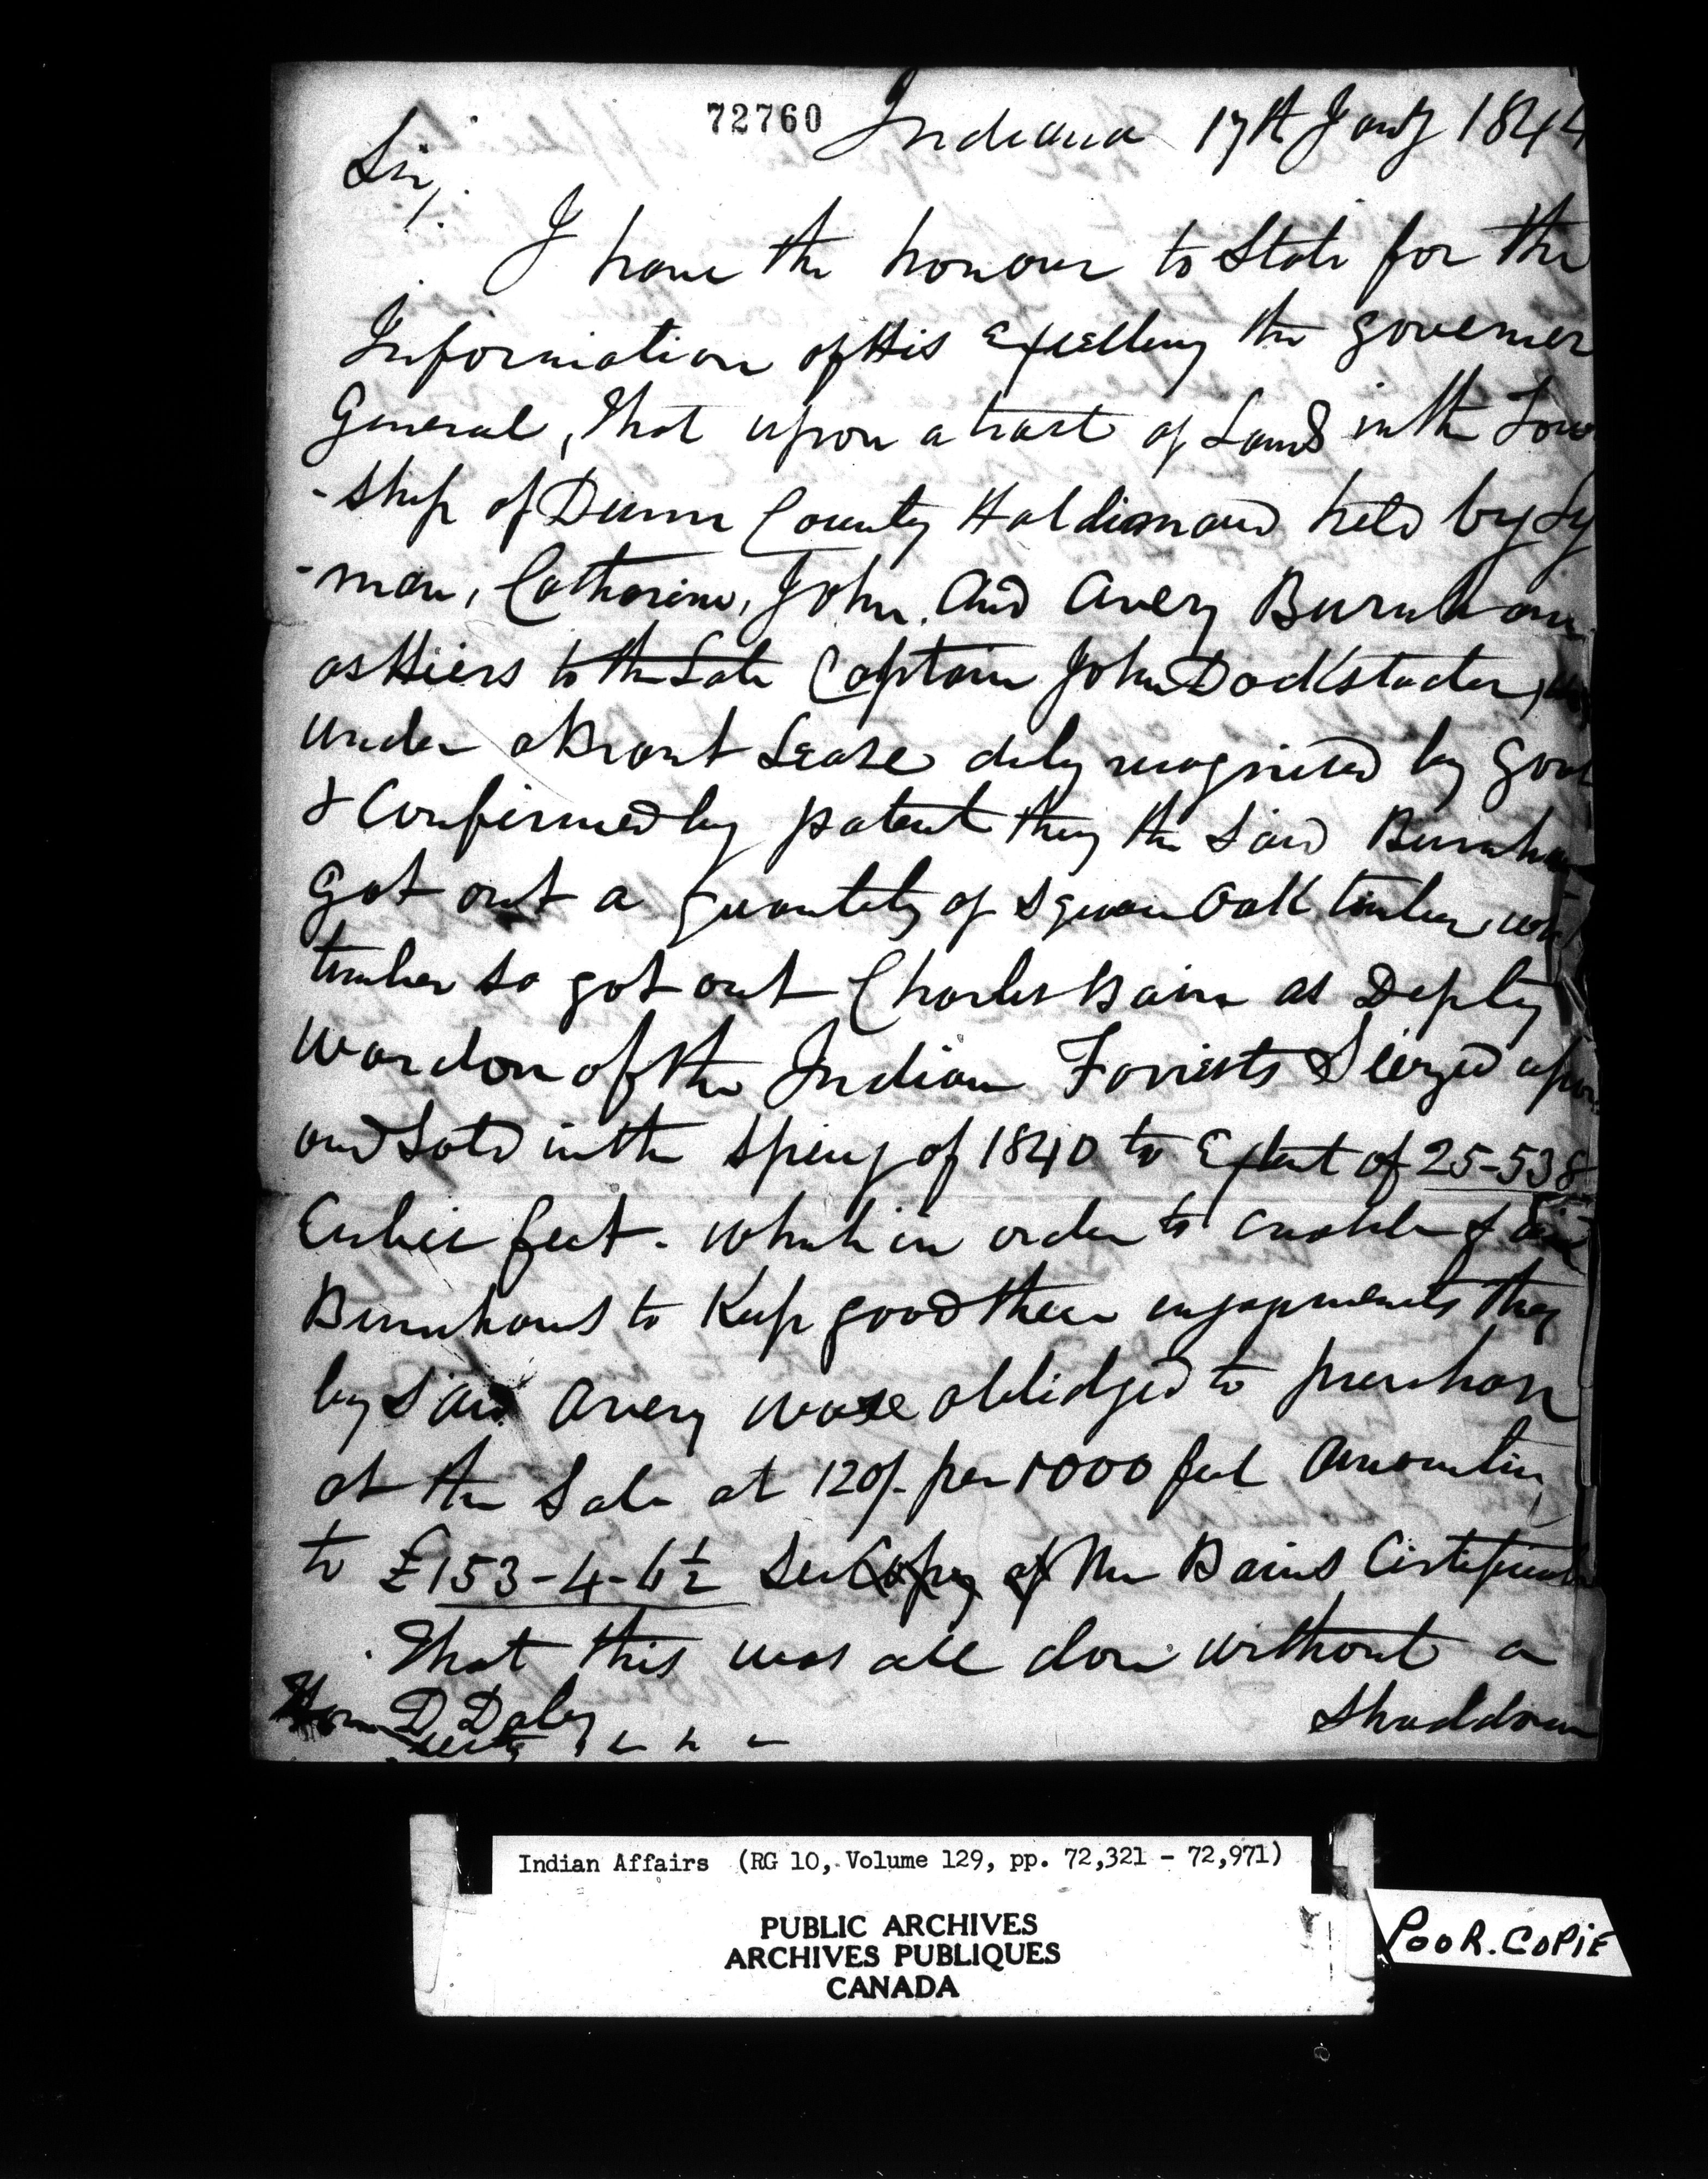 72760
Indiana 17th Jany 1844
Sir,
I have the honour to State for the
Information of His Excellency the Governer
General, that upon a tract of Land in the Town
-ship of Dunn County Haldimand held by Ly
-man, Catharine, John, And Avery Burnham
as Hiers to the Late Captain John Dockstader,
under a Brant Lease duly recognised by Govt
& Confirmed by patent they the Said Burnham
got out a quantity of Square Oak timber, wh
timber so got out Charles Bain as Depty
Wardon of the Indian Forrests Siezed upon
and Sold in the Spring of 1840 to Extent of 25-538
Cubic feet. which in order to enable Said
Burnhams to Keep good their engagements they
by Said Avery wase oblidged to purchase
at the Sale at 120/- per 1000 feet Amounting
to £153-4-6½ See Copy of Mr Bains Certificate
That this was all done without a
Shaddow
Honr D Daly
Secty
Indian Affairs (RG 10, Volume 129, pp. 72,321 - 72,971)
PUBLIC ARCHIVES
ARCHIVES PUBLIQUES
CANADA
POOR.COPIE